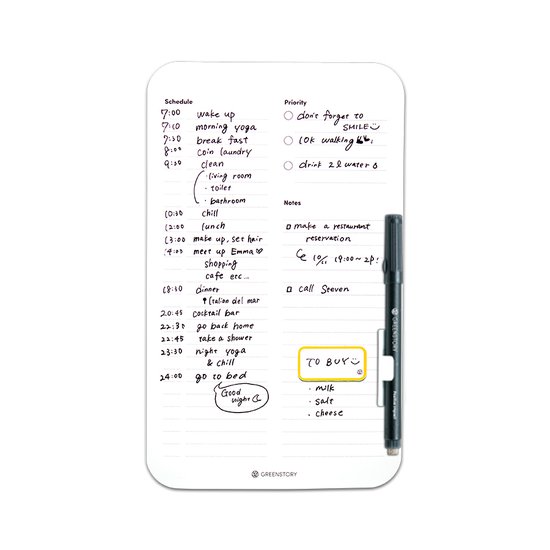 Schedule
7:00 wake up
7:10 morning yoga
7:30 break fast
8:00 coin laundry
9:30 clean
· living room
· toilet
· bathroom
10:30 chill
12:00 lunch
13:00 make up, set hair
14:00 meet up Emma♡
shopping
cafe etc...
18:30 dinner
Italino del mar
20:45 cocktail bar
22:30 go back home
22:45 take a shower
23:30 night yoga
& chill
24:00 go to bed
Good
night
Priority
don't forget to
SMILE
10K walking
drink 2L water
Notes
make a restaurant
reservation
10/11 19:00~ 2p!
call Steven
TO BUY
· milk
· salt
· cheese
GREENSTORY
GREENSTORY